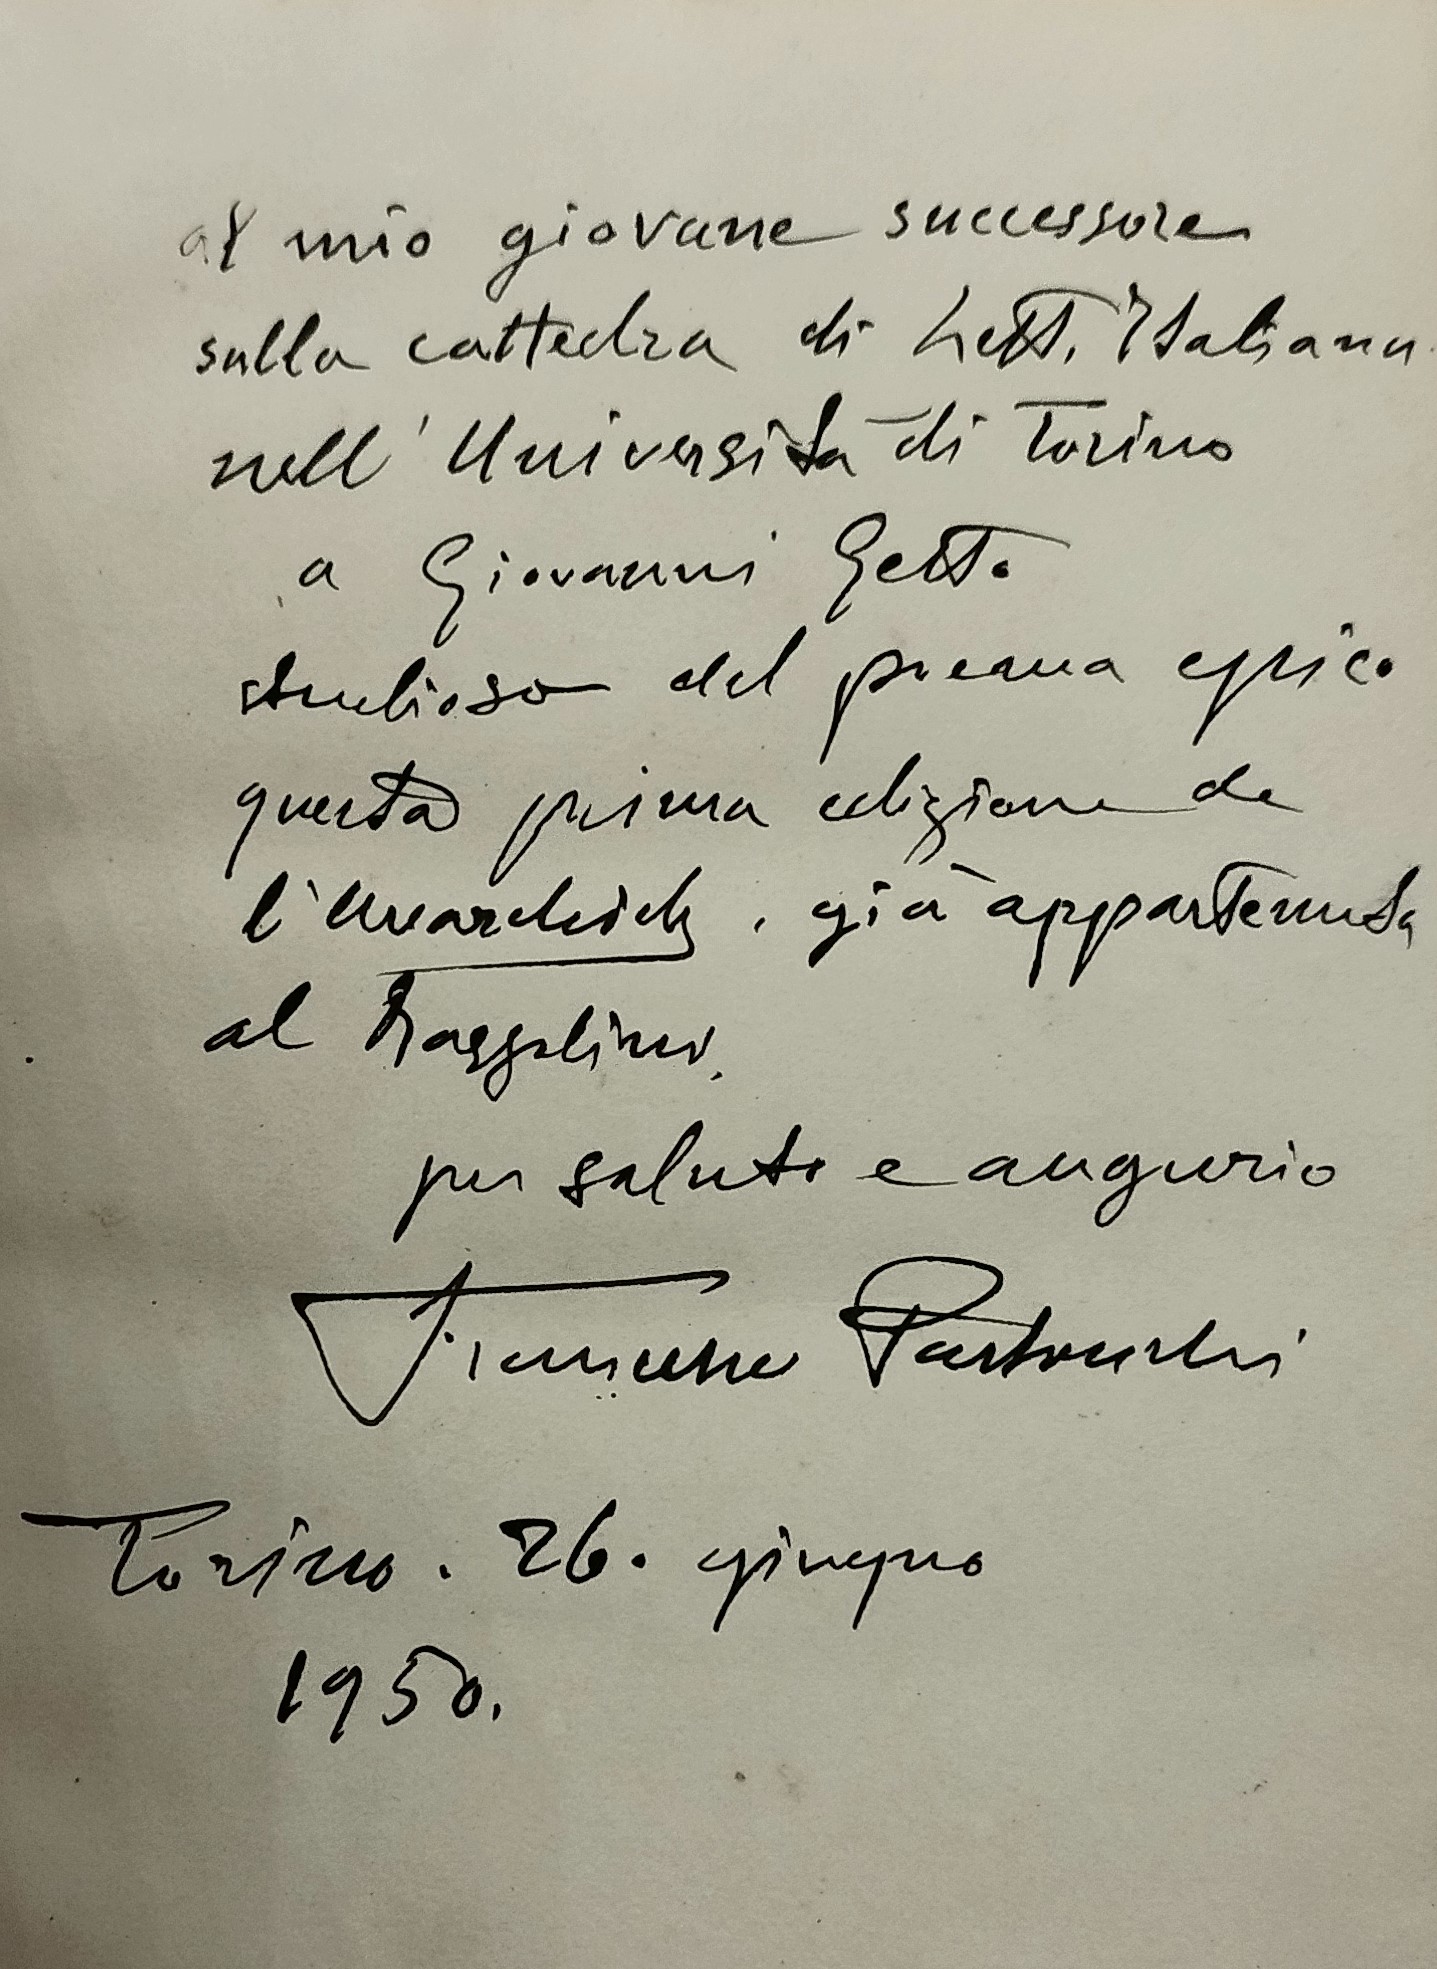 al mio giovane successore
sulla cattedra di Lett. Italiana
nell' Università di Torino
a Giovanni Getto
studioso del poema epico
questa prima edizione de
l'Avarchide, già appartenuta
al
per saluto e augurio
Francesco Pastonchi
Torino. 26. giugno
1950.